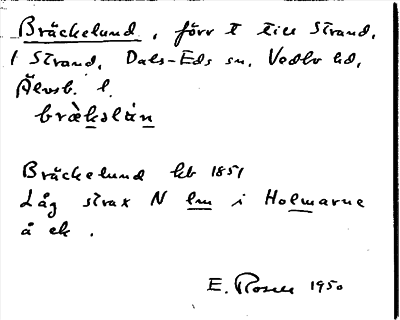 Bräckelund, förr t till Strand,
/ Strand, Dals-Eds sn, Vedbo hd,
Älvsb. l.
bræ̀kslún
Bräckelund kb 1851
Låg strax N lm i Holmarne
å ek.
E. Rosell 1950